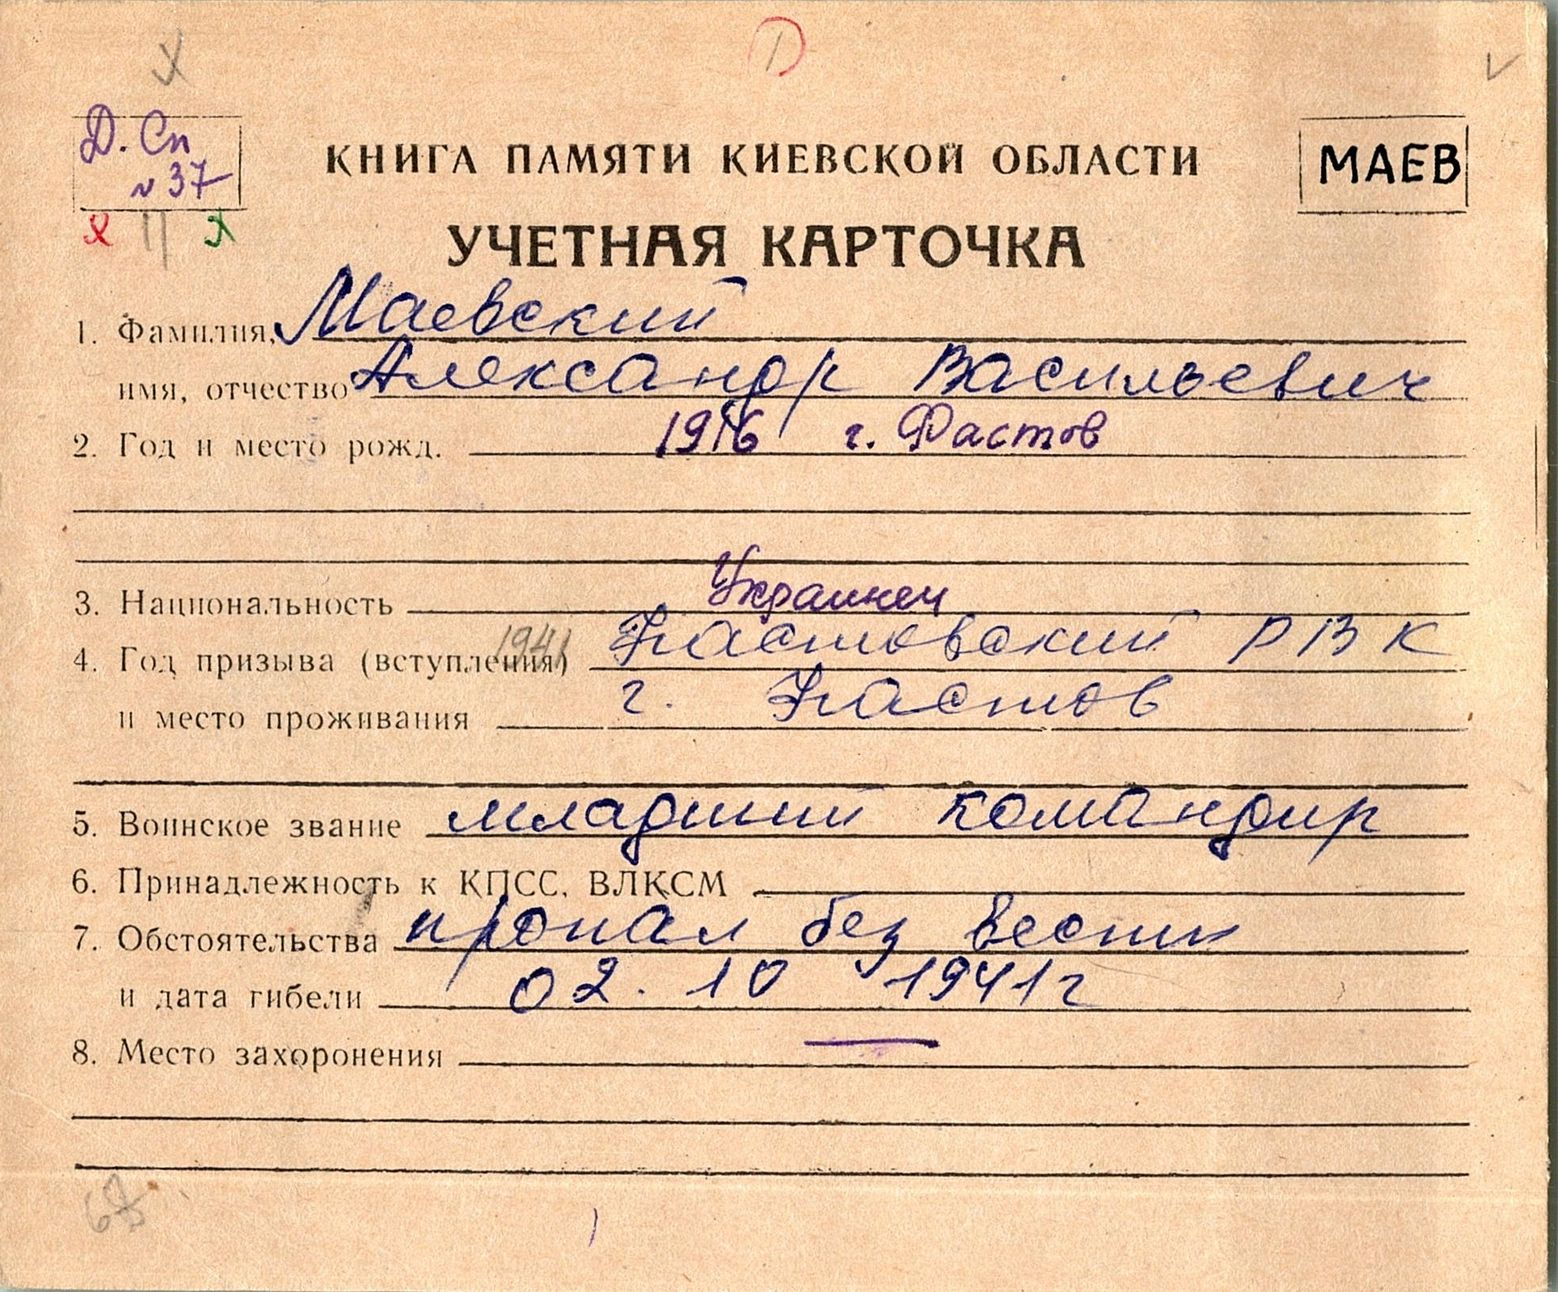 1
Д. Сп
№ 37
КНИГА ПАМЯТИ КИЕВСКОЙ ОБЛАСТИ
МАЕВ
УЧЕТНАЯ КАРТОЧКА
1. Фамилия, Маевский
имя, отчество Александр Васильевич
2. Год и место рожд. 1916 г. Фастов
3. Национальность Украинец
4. Год призыва (вступления) 1941 Фастовский РВК
и место проживания г. Фастов
5. Воинское звание младший командир
6. Принадлежность к КПСС, ВЛКСМ
7. Обстоятельства пропал без вести
и дата гибели 02.10 1941г
8. Место захоронения —